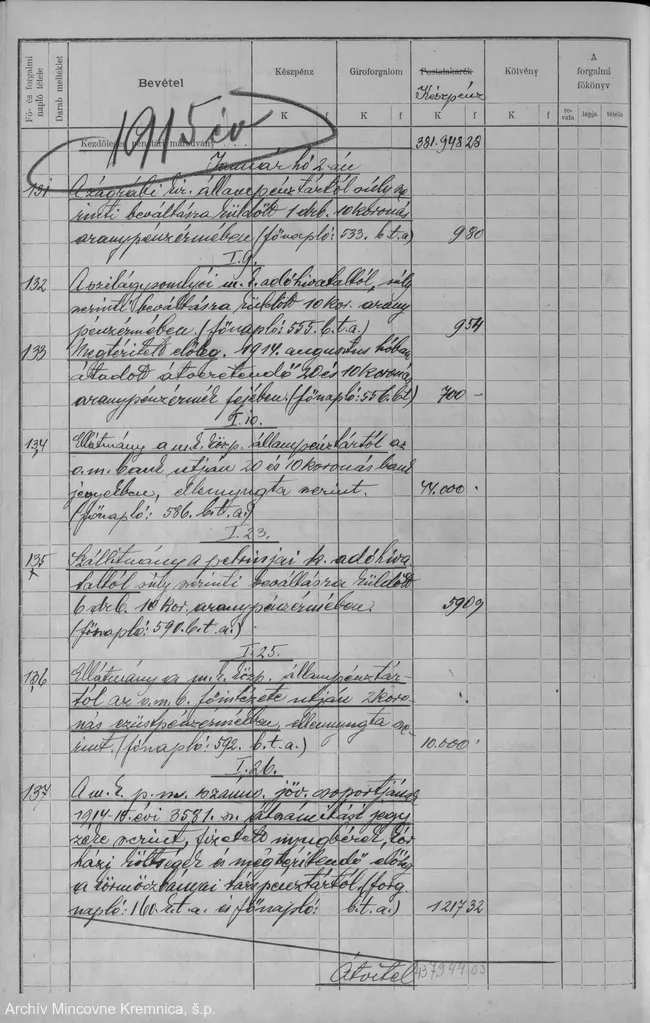 Fő- és forgalmi napló tétele
Darab melléklet
Bevétel
Készpénz
Giroforgalom
Postatakarék
Készpénz
Kötvény
A forgalmi főkönyv
K f K f K f K f rovata lapja tétele
1915 év
Kezdőleges pénztári maradvány 381.948 28
Január hó 2-án
131 A zágrábi kir. állampénztártól súly sze-
rinti beváltásra küldött 1 drb. 10 koronás
aranypénzérmében (főnapló: 533. b.t.a) 9 80
I.9.
132 A szilágysomlyói m. k. adóhivataltól, súly
szerinti beváltásra küldött 10 kor. arany
pénzérmében. (főnapló: 555. b.t.a.) 9 54
133 Megtérített előleg. 1914. augustus hóban
átadott átveretendő 20 és 10 koronás
aranypénzérmék fejében. (főnapló: 556. b.t) 700 -
I.10.
134 Ellátmány a m. k. közp. állampénztártól az
o. m. bank útján 20 és 10 koronás bank
jegyekben, ellennyugta szerint. 44.000 .
(főnapló: 586. b.t.a.)
I.23.
135 Szállítmány a petrinjai k. adóhiva-
taltól súly szerinti beváltásra küldött
6 drb. 10 kor. aranypénzérmében. 59 09
(főnapló: 590. b.t.a.)
I.25.
136 Ellátmány a m. k. közp. állampénztár-
tól az o. m. b. főintézete útján 2 koro-
nás ezüstpénzérmékben, ellennyugta sze-
rint. (főnapló: 592. b.t.a.) 10.000 .
I.26.
137 A m. k. p. m. számv. jöv. csoportjának
1914-15. évi 3531. sz. átszámítási jegy
zéke szerint, fizetett nyugbérek, kór-
házi költségek és megtérítendő előleg
a körmöczbányai társpénztártól. (forg.
napló: 160. t.a. és főnapló: b.t.a.) 1217 32
Átvitel 437.944 03
Archív Mincovne Kremnica, š.p.